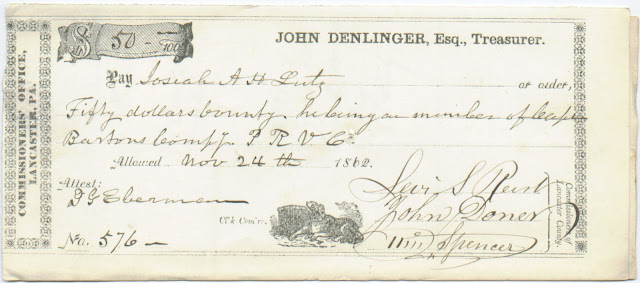 COMMISSIONERS' OFFICE,
LANCASTER, PA.
$ 50 - /100
JOHN DENLINGER, Esq., Treasurer.
Pay Josiah A H Lutz or order,
Fifty dollars bounty he being a member of Capt
Bartons Comp P R V C
Allowed Nov 24 th 1862.
Attest:
P G Eberman
Cl'k Com'rs.
No. 576 -
Levi S Reist
John Doner
Wm Spencer
Commissioners of
Lancaster County.